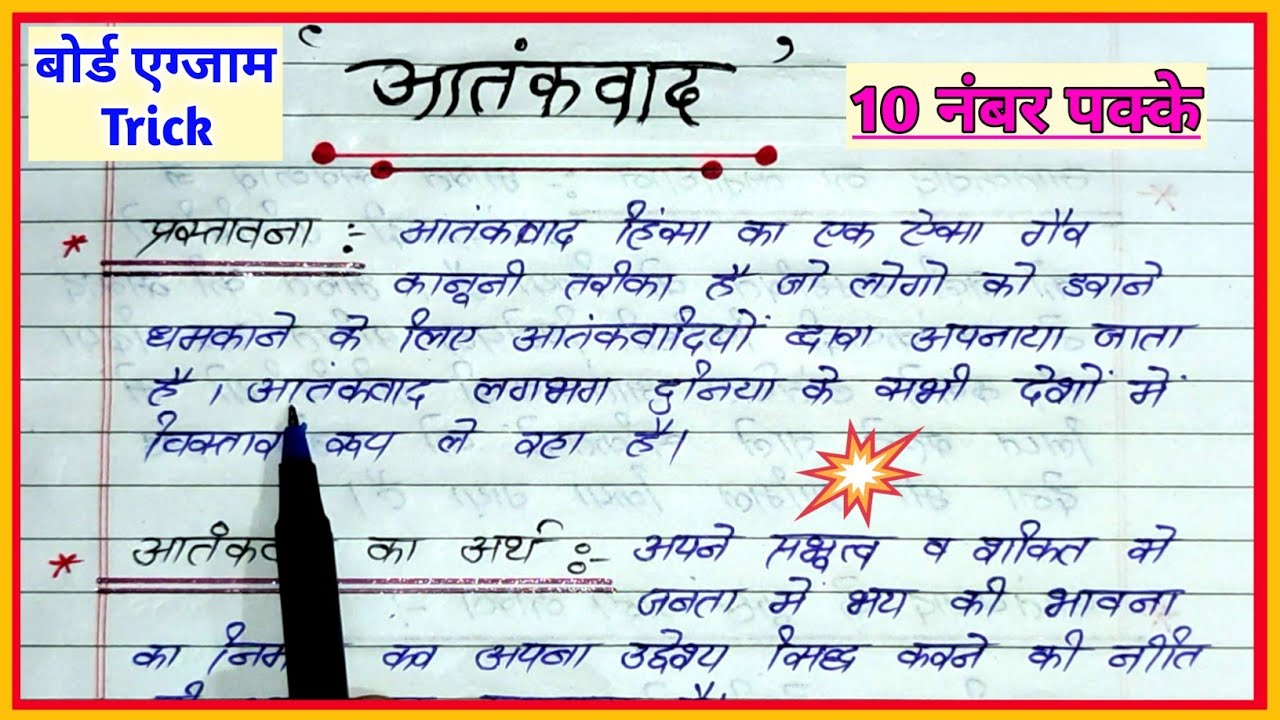 बोर्ड एग्जाम
Trick
'आतंकवाद'
10 नंबर पक्के
* प्रस्तावना :- आतंकवाद हिंसा का एक ऐसा गैर
कानूनी तरीका है जो लोगो को डराने
धमकाने के लिए आतंकवादियों द्वारा अपनाया जाता
है। आतंकवाद लगभग दुनिया के सभी देशों में
विस्तार रूप ले रहा है।
* का अर्थ :- अपने व शक्ति से
जनता में भय की भावना
का कर अपना उद्देश्य सिद्ध करने की नीति